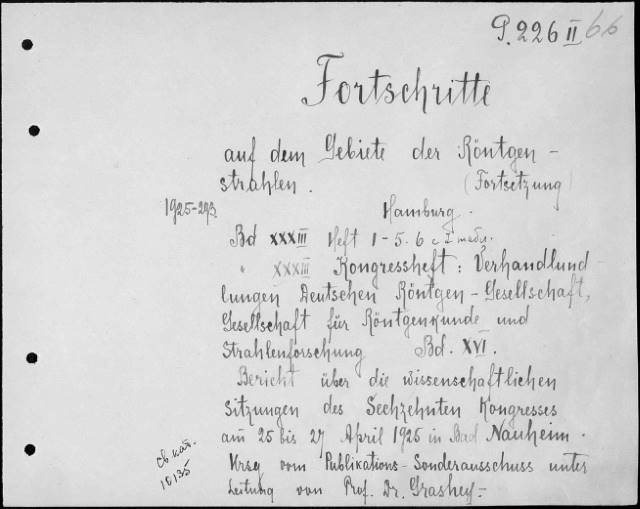 P. 226 II 66
Fortschritte
auf dem Gebiete der Röntgen-
strahlen. (Fortsetzung)
1925-293 Hamburg.
Bd XXXIII Heft 1-5. 6 с I табл.
" XXXIII Kongressheft: Verhandlund-
lungen Deutschen Röntgen-Gesellschaft,
Gesellschaft für Röntgenkunde und
Strahlenforschung Bd. XVI.
Bericht über die wissenschaftlichen
Sitzungen des Sechzehnten Kongresses
am 25 bis 27 April 1925 in Bad Nauheim.
Hrsg vom Publikations-Sonderausschuss unter
Leitung von Prof. Dr. Grashey.-
св. кат.
10135